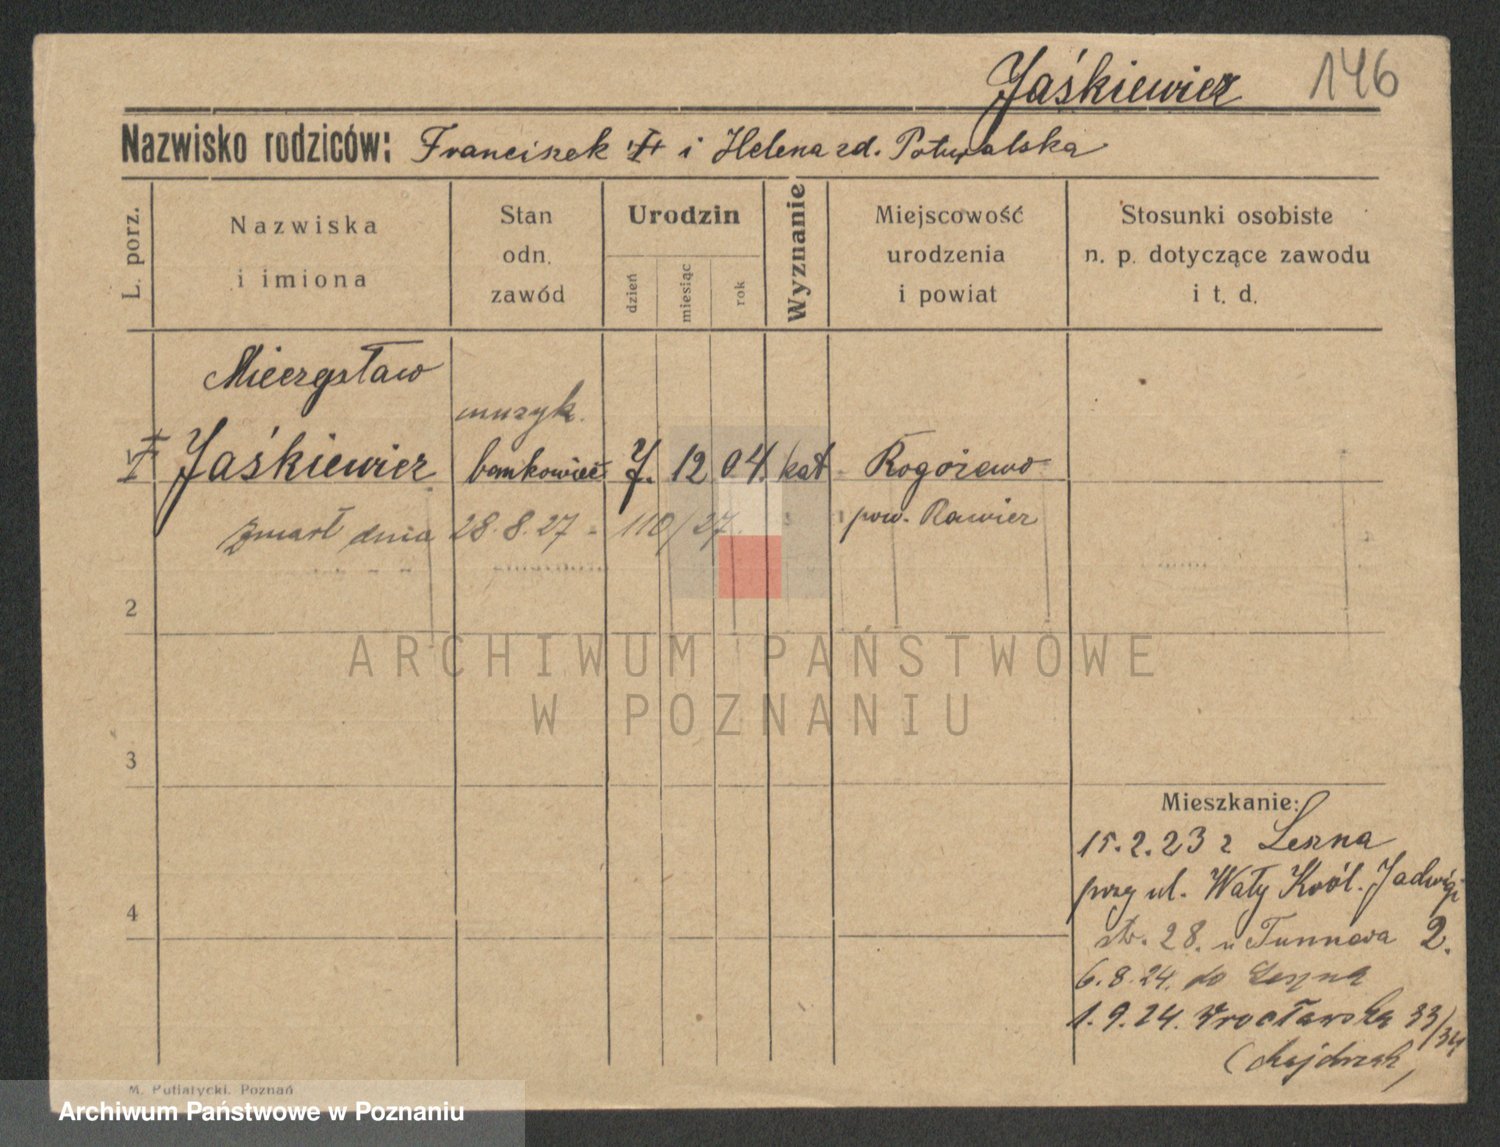 Jaśkiewicz 146
Nazwisko rodziców: Franciszek i Helena zd. Poturalska
L. porz.
Nazwiska
i imiona
Stan
odn.
zawód
Urodzin
dzień
miesiąc
rok
Wyznanie
Miejscowość
urodzenia
i powiat
Stosunki osobiste
n. p. dotyczące zawodu
i t. d.
Mieczysław
muzyk.
Jaśkiewicz bankowiec 7. 12 04. kat. Rogożewo
pow. Rawicz
zmarł dnia 28.8.27 - 110/27
2
3
4
Mieszkanie:
15.2.23 z Leszna
przy ul. Wały Król. Jadwigi
str. 28. u Tunnera 2.
6.8.24. do Leszna
1.9.24. Wrocławska 33/34
(Majchrzak)
M. Putiatycki, Poznań
ARCHIWUM PAŃSTWOWE
W POZNANIU
Archiwum Państwowe w Poznaniu